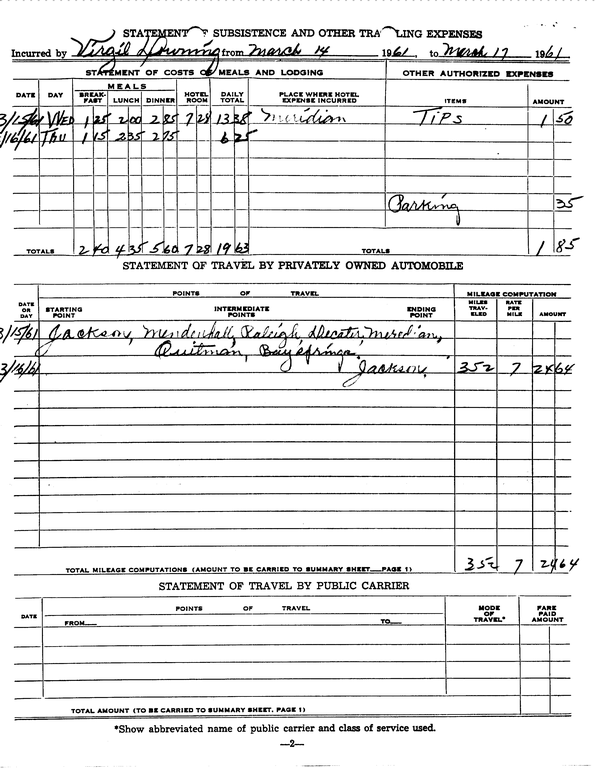 STATEMENT OF SUBSISTENCE AND OTHER TRA LING EXPENSES
Incurred by Virgil Downing from March 14 1961, to March 17 1961
STATEMENT OF COSTS OF MEALS AND LODGING OTHER AUTHORIZED EXPENSES
DATE DAY MEALS BREAK-FAST LUNCH DINNER HOTEL ROOM DAILY TOTAL PLACE WHERE HOTEL EXPENSE INCURRED ITEMS AMOUNT
3/15/61 WED 1 25 2 00 2 85 7 28 13 38 Meridian TIPS 1 50
/16/61 THU 1 15 2 35 2 75 6 25
Parking 35
TOTALS 2 40 4 35 5 60 7 28 19 63 TOTALS 1 85
STATEMENT OF TRAVEL BY PRIVATELY OWNED AUTOMOBILE
POINTS OF TRAVEL MILEAGE COMPUTATION
DATE OR DAY STARTING POINT INTERMEDIATE POINTS ENDING POINT MILES TRAV-ELED RATE PER MILE AMOUNT
3/15/61 Jackson, Mendenhall, Raleigh, Decater, Meredian,
Quitman, Bay Springs,
3/16/61 Jackson, 352 7 24 64
TOTAL MILEAGE COMPUTATIONS (AMOUNT TO BE CARRIED TO SUMMARY SHEET__PAGE 1) 352 7 24 64
STATEMENT OF TRAVEL BY PUBLIC CARRIER
DATE POINTS OF TRAVEL MODE OF TRAVEL* FARE PAID AMOUNT
FROM__ TO__
TOTAL AMOUNT (TO BE CARRIED TO SUMMARY SHEET. PAGE 1)
*Show abbreviated name of public carrier and class of service used.
—2—